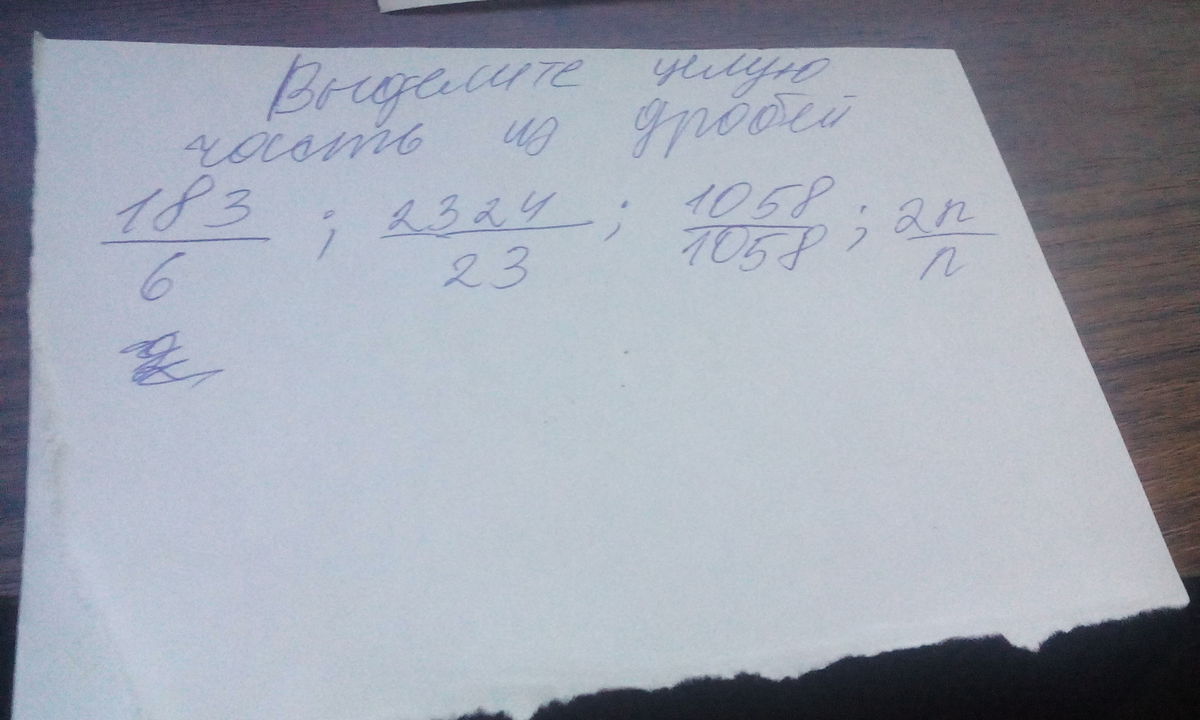 Выделите целую
часть из дробей
183/6 ; 2324/23 ; 1058/1058 ; 2n/n